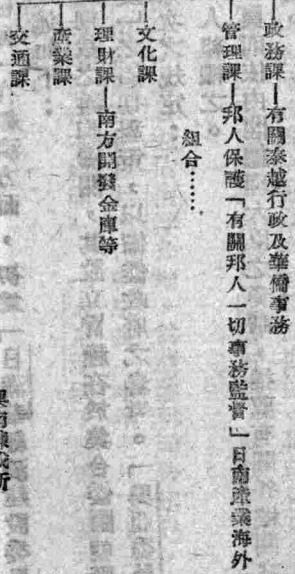 政務課—有關泰越行政及華僑事務
管理課—邦人保護「有關邦人一切事務監督」日南產業海外
組合……
文化課
理財課—南方開發金庫等
產業課
交通課